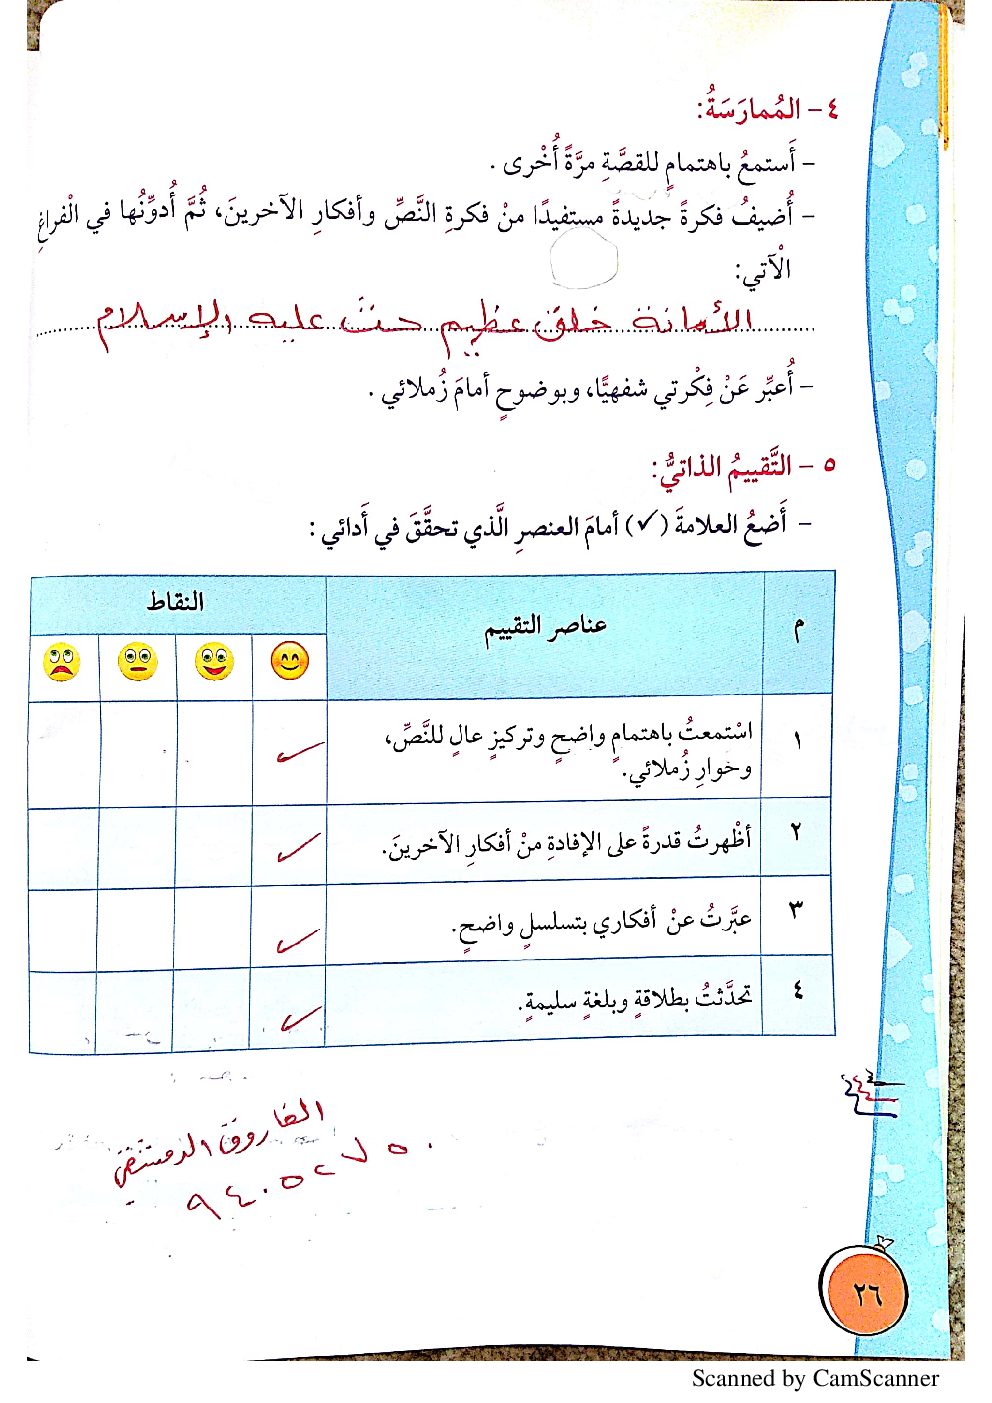 ٤ - المُمارَسَةُ:
- أَستمعُ باهتمامٍ للقصَّةِ مرَّةً أُخْرى .
- أُضيفُ فكرةً جديدةً مستفيدًا منْ فكرةِ النَّصِّ وأفكارِ الآخرينَ، ثُمَّ أُدوِّنُها في الْفراغِ
الْآتي:
الأمانة خلق عظيم حث عليه الإسلام
- أُعبِّر عَنْ فِكْرتي شفهيًّا، وبوضوحٍ أمامَ زُملائي .
٥ - التَّقييمُ الذاتيُّ:
- أَضعُ العلامةَ (✓) أمامَ العنصرِ الَّذي تحقَّقَ في أَدائي :
م عناصر التقييم النقاط
١ اسْتمعتُ باهتمامٍ واضحٍ وتركيزٍ عالٍ للنَّصِّ، ✓
وحوارِ زُملائي.
٢ أظْهرتُ قدرةً على الإفادةِ منْ أفكارِ الآخرينَ. ✓
٣ عبَّرتُ عنْ أفكاري بتسلسلٍ واضحٍ. ✓
٤ تحدَّثتُ بطلاقةٍ وبلغةٍ سليمةٍ. ✓
الفاروق
٢٦
Scanned by CamScanner